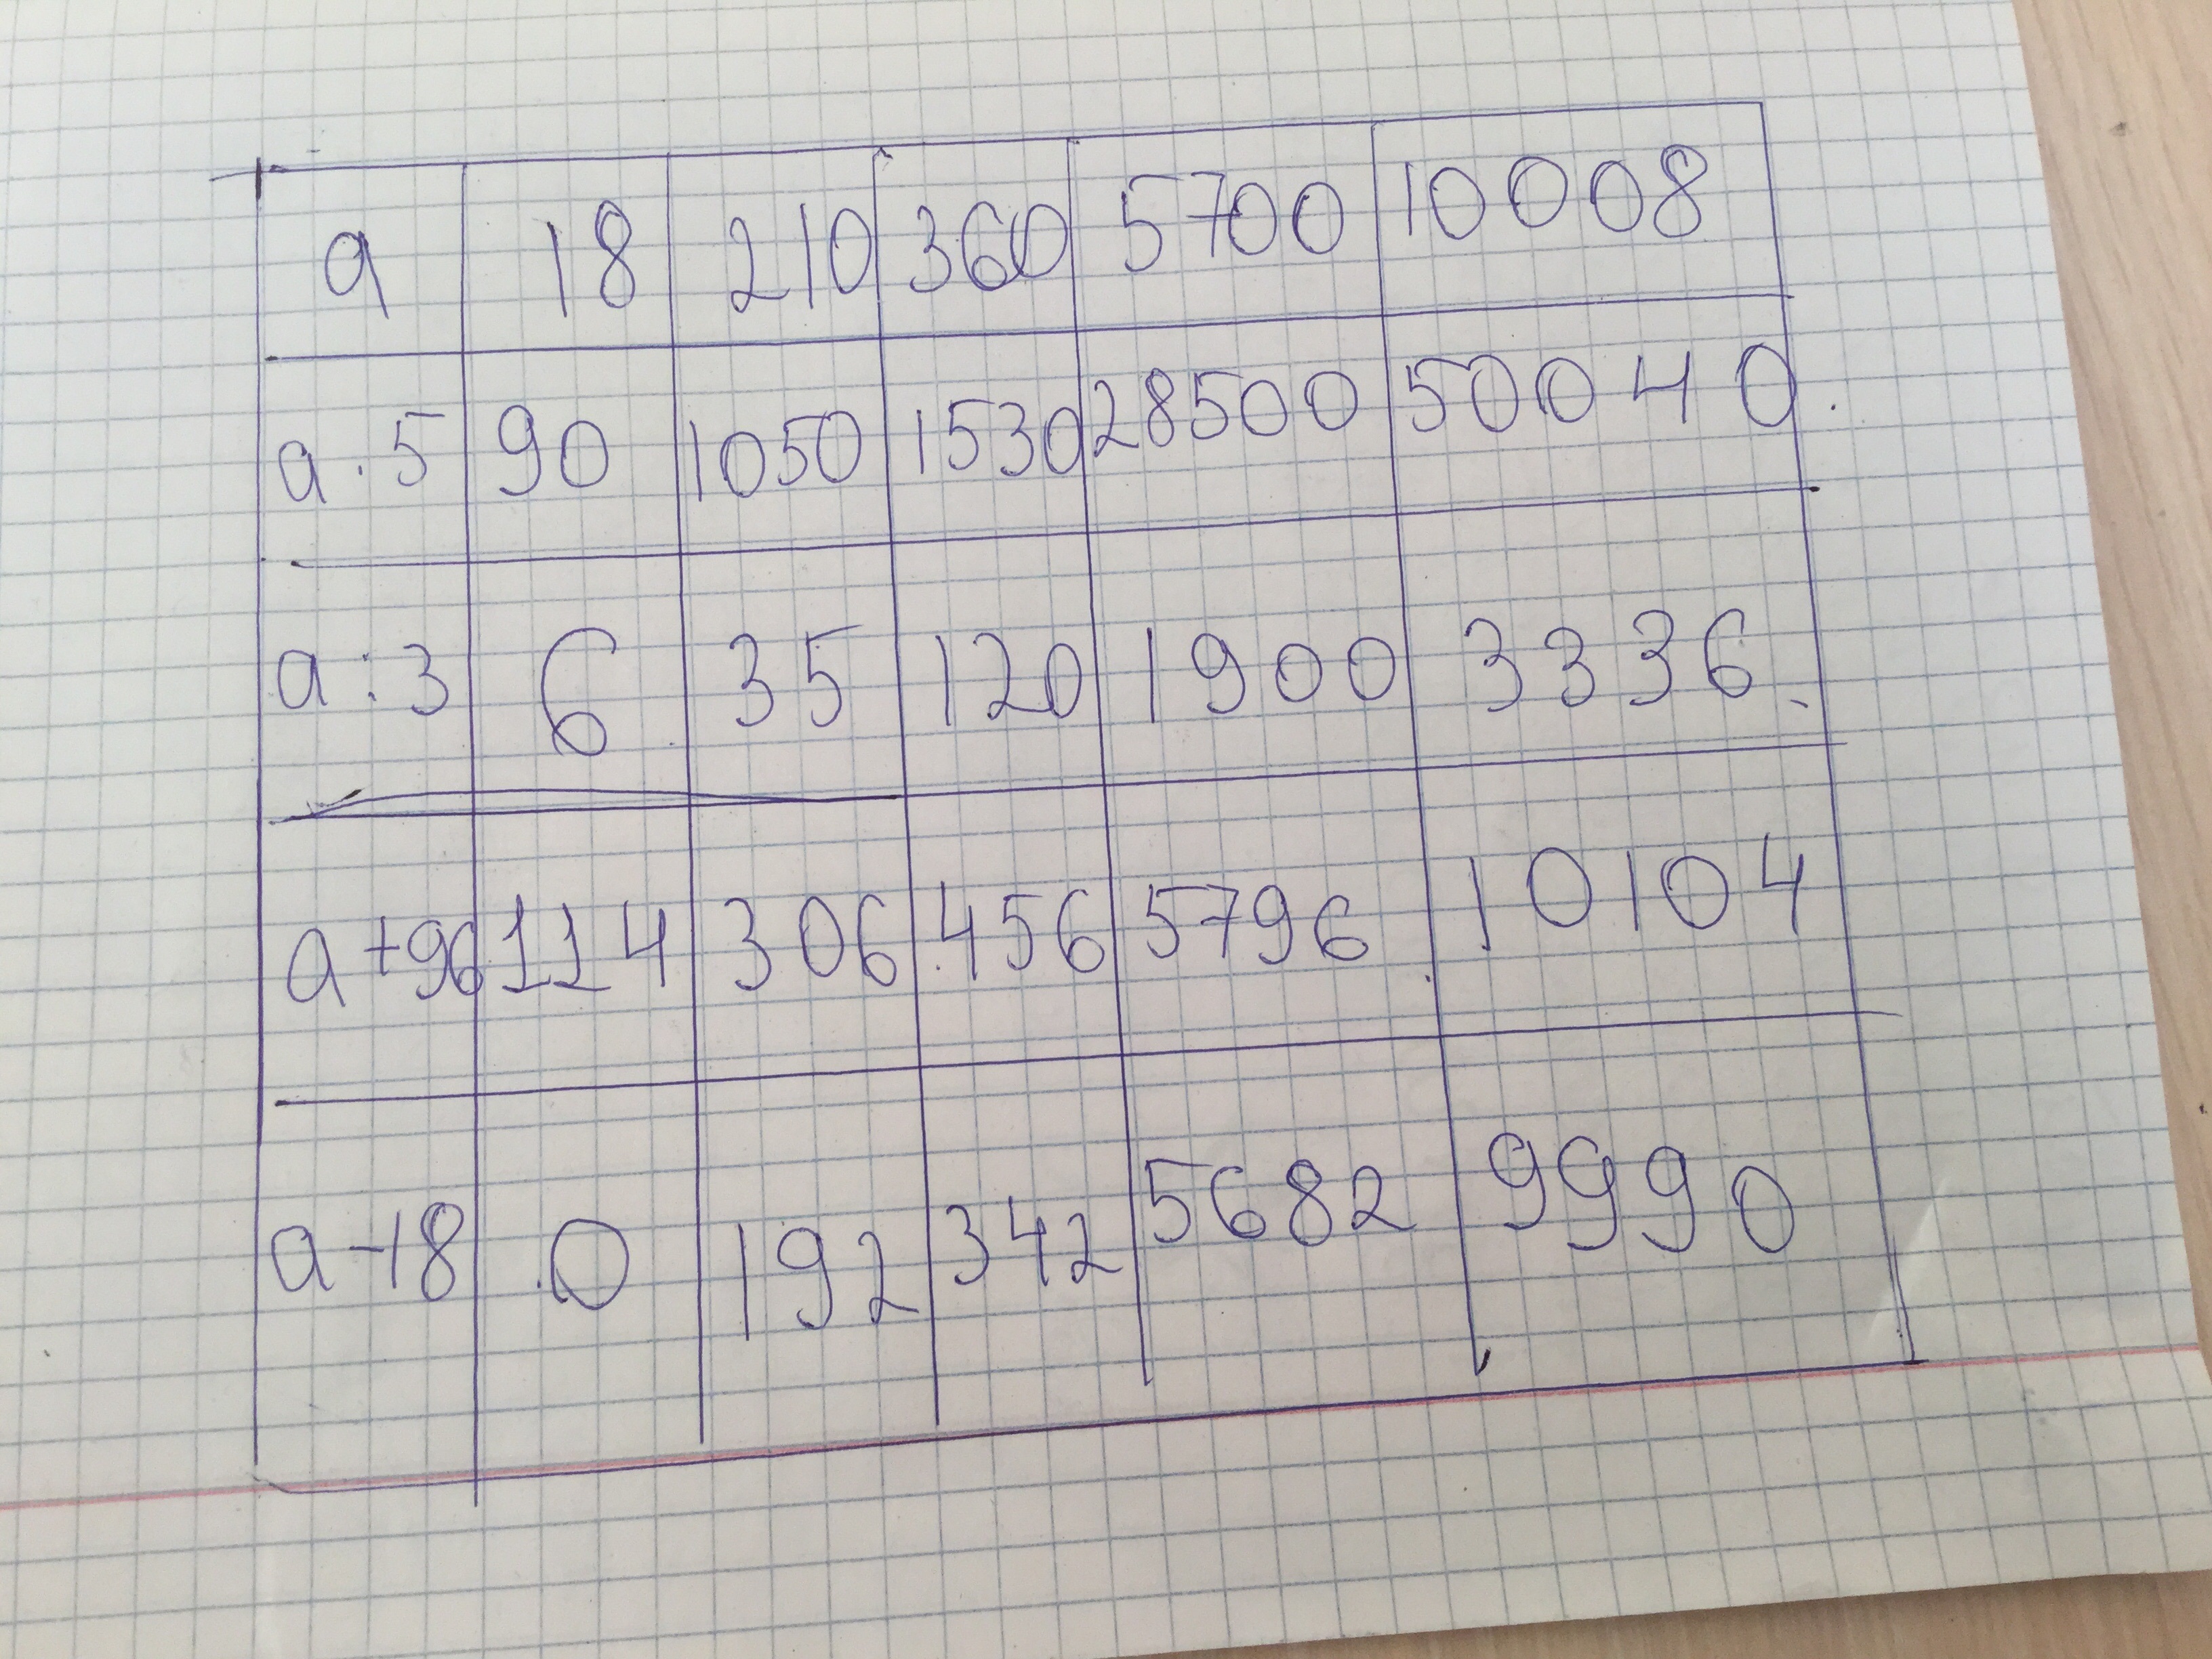 a 18 210 360 5700 10008
a · 5 90 1050 1530 28500 50040
a : 3 6 35 120 1900 3336
a + 96 114 306 456 5796 10104
a - 18 0 192 342 5682 9990